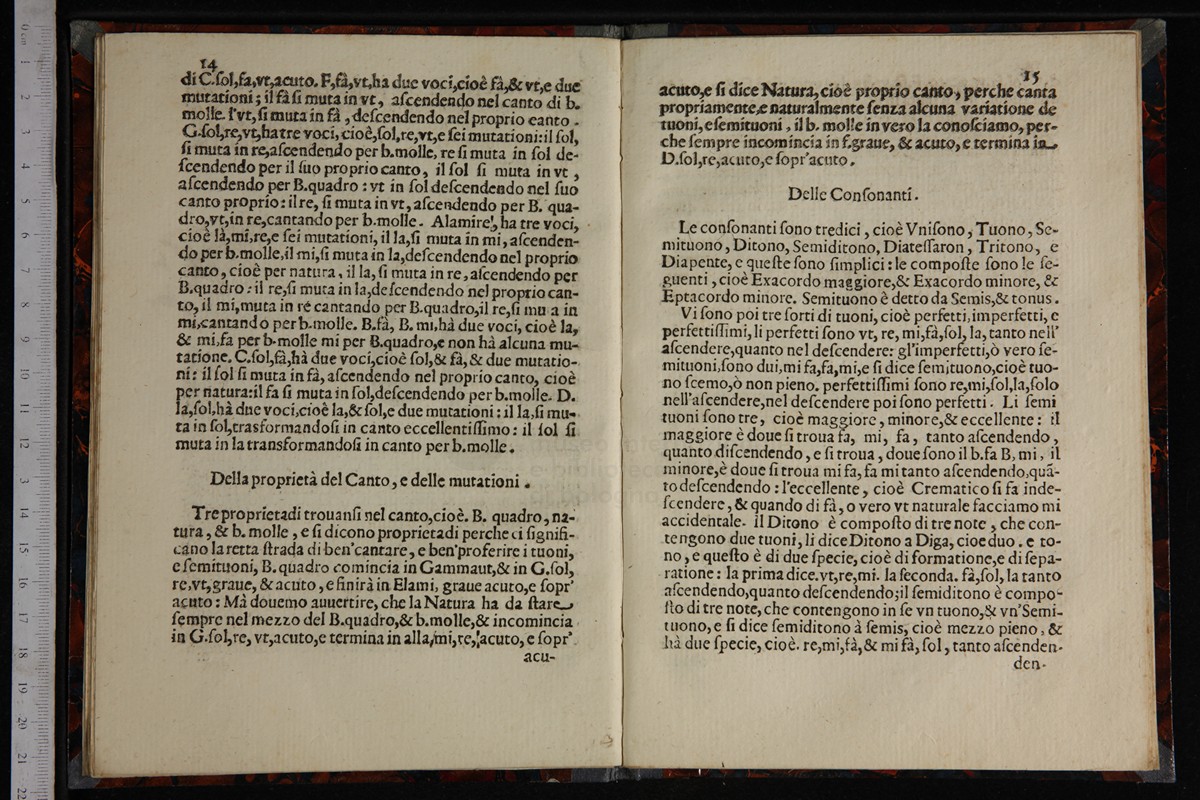 14
di C.ſol,fa,vt,acuto. F,fà,vt,ha due voci,cioè fà,& vt,e due
mutationi; il fà ſi muta in vt, aſcendendo nel canto di b.
molle. l'vt, ſi muta in fà, deſcendendo nel proprio canto.
G.ſol,re,vt,ha tre voci, cioè,ſol,re,vt,e ſei mutationi:il ſol,
ſi muta in re,aſcendendo per b.molle, re ſi muta in ſol de-
ſcendendo per il ſuo proprio canto, il ſol ſi muta in vt,
aſcendendo per B.quadro : vt in ſol deſcendendo nel ſuo
canto proprio: il re, ſi muta in vt, aſcendendo per B. qua-
dro,vt,in re,cantando per b.molle. Alamire, ha tre voci,
cioè là,mi,re,e ſei mutationi, il la,ſi muta in mi, aſcenden-
do per b.molle,il mi,ſi muta in la,deſcendendo nel proprio
canto, cioè per natura, il la, ſi muta in re, aſcendendo per
B.quadro : il re,ſi muta in la,deſcendendo nel proprio can-
to, il mi,muta in re cantando per B.quadro,il re,ſi mu a in
mi,cantando per b.molle. B.fà, B. mi,hà due voci, cioè la,
& mi,fa per b.molle mi per B.quadro,e non hà alcuna mu-
tatione. C.ſol,fà,hà due voci,cioè ſol,& fà,& due mutatio-
ni: il ſol ſi muta in fà, aſcendendo nel proprio canto, cioè
per natura:il fa ſi muta in ſol,deſcendendo per b.molle. D.
la,ſol,hà due voci,cioè la,& ſol,e due mutationi : il la,ſi mu-
ta in ſol,trasformandoſi in canto eccellentiſſimo: il ſol ſi
muta in la transformandoſi in canto per b.molle.
Della proprietà del Canto, e delle mutationi.
Tre proprietadi trouanſi nel canto,cioè. B. quadro, na-
tura, & b. molle, e ſi dicono proprietadi perche ci ſignifi-
cano la retta ſtrada di ben'cantare, e ben'proferire i tuoni,
e ſemituoni, B. quadro comincia in Gammaut,& in G.ſol,
re,vt,graue, & acuto, e finirà in Elami, graue acuto,e ſopr'
acuto: Mà douemo auuertire, che la Natura ha da ſtare
ſempre nel mezzo del B.quadro,& b.molle,& incomincia
in G.ſol,re, vt,acuto,e termina in alla,mi,re, acuto, e ſopr'
acu-
15
acuto,e ſi dice Natura, cioè proprio canto, perche canta
propriamente,e naturalmente ſenza alcuna variatione de
tuoni, e ſemituoni, il b. molle in vero la conoſciamo, per-
che ſempre incomincia in f.graue, & acuto, e termina in
D.ſol,re,acuto,e ſopr'acuto.
Delle Conſonanti.
Le conſonanti ſono tredici, cioè Vniſono, Tuono, Se-
mituono, Ditono, Semiditono, Diateſſaron, Tritono, e
Diapente, e queſte ſono ſimplici : le compoſte ſono le ſe-
guenti, cioè Exacordo maggiore,& Exacordo minore, &
Eptacordo minore. Semituono è detto da Semis,& tonus.
Vi ſono poi tre ſorti di tuoni, cioè perfetti, imperfetti, e
perfettiſſimi, li perfetti ſono vt, re, mi,fà,ſol, la, tanto nell'
aſcendere,quanto nel deſcendere: gl'imperfetti,ò vero ſe-
mituoni,ſono dui,mi fa,fa,mi,e ſi dice ſemituono,cioè tuo-
no ſcemo,ò non pieno. perfettiſſimi ſono re,mi,ſol,la,ſolo
nell'aſcendere,nel deſcendere poi ſono perfetti. Li ſemi
tuoni ſono tre, cioè maggiore, minore,& eccellente : il
maggiore è doue ſi troua fa, mi, fa, tanto aſcendendo,
quanto diſcendendo, e ſi troua, doue ſono il b.fa B, mi, il
minore,è doue ſi troua mi fa, fa mi tanto aſcendendo,quā-
to deſcendendo : l'eccellente, cioè Crematico ſi fa inde-
ſcendere, & quando di fà, o vero vt naturale facciamo mi
accidentale. il Ditono è compoſto di tre note, che con-
tengono due tuoni, li dice Ditono a Diga, cioe duo. e to-
no, e queſto è di due ſpecie, cioè di formatione,e di ſepa-
ratione : la prima dice.vt,re,mi. la ſeconda. fà,ſol, la tanto
aſcendendo,quanto deſcendendo;il ſemiditono è compo-
ſto di tre note, che contengono in ſe vn tuono,& vn'Semi-
tuono, e ſi dice ſemiditono à ſemis, cioè mezzo pieno, &
hà due ſpecie, cioè. re,mi,fà,& mi fà, ſol, tanto aſcenden-
den-